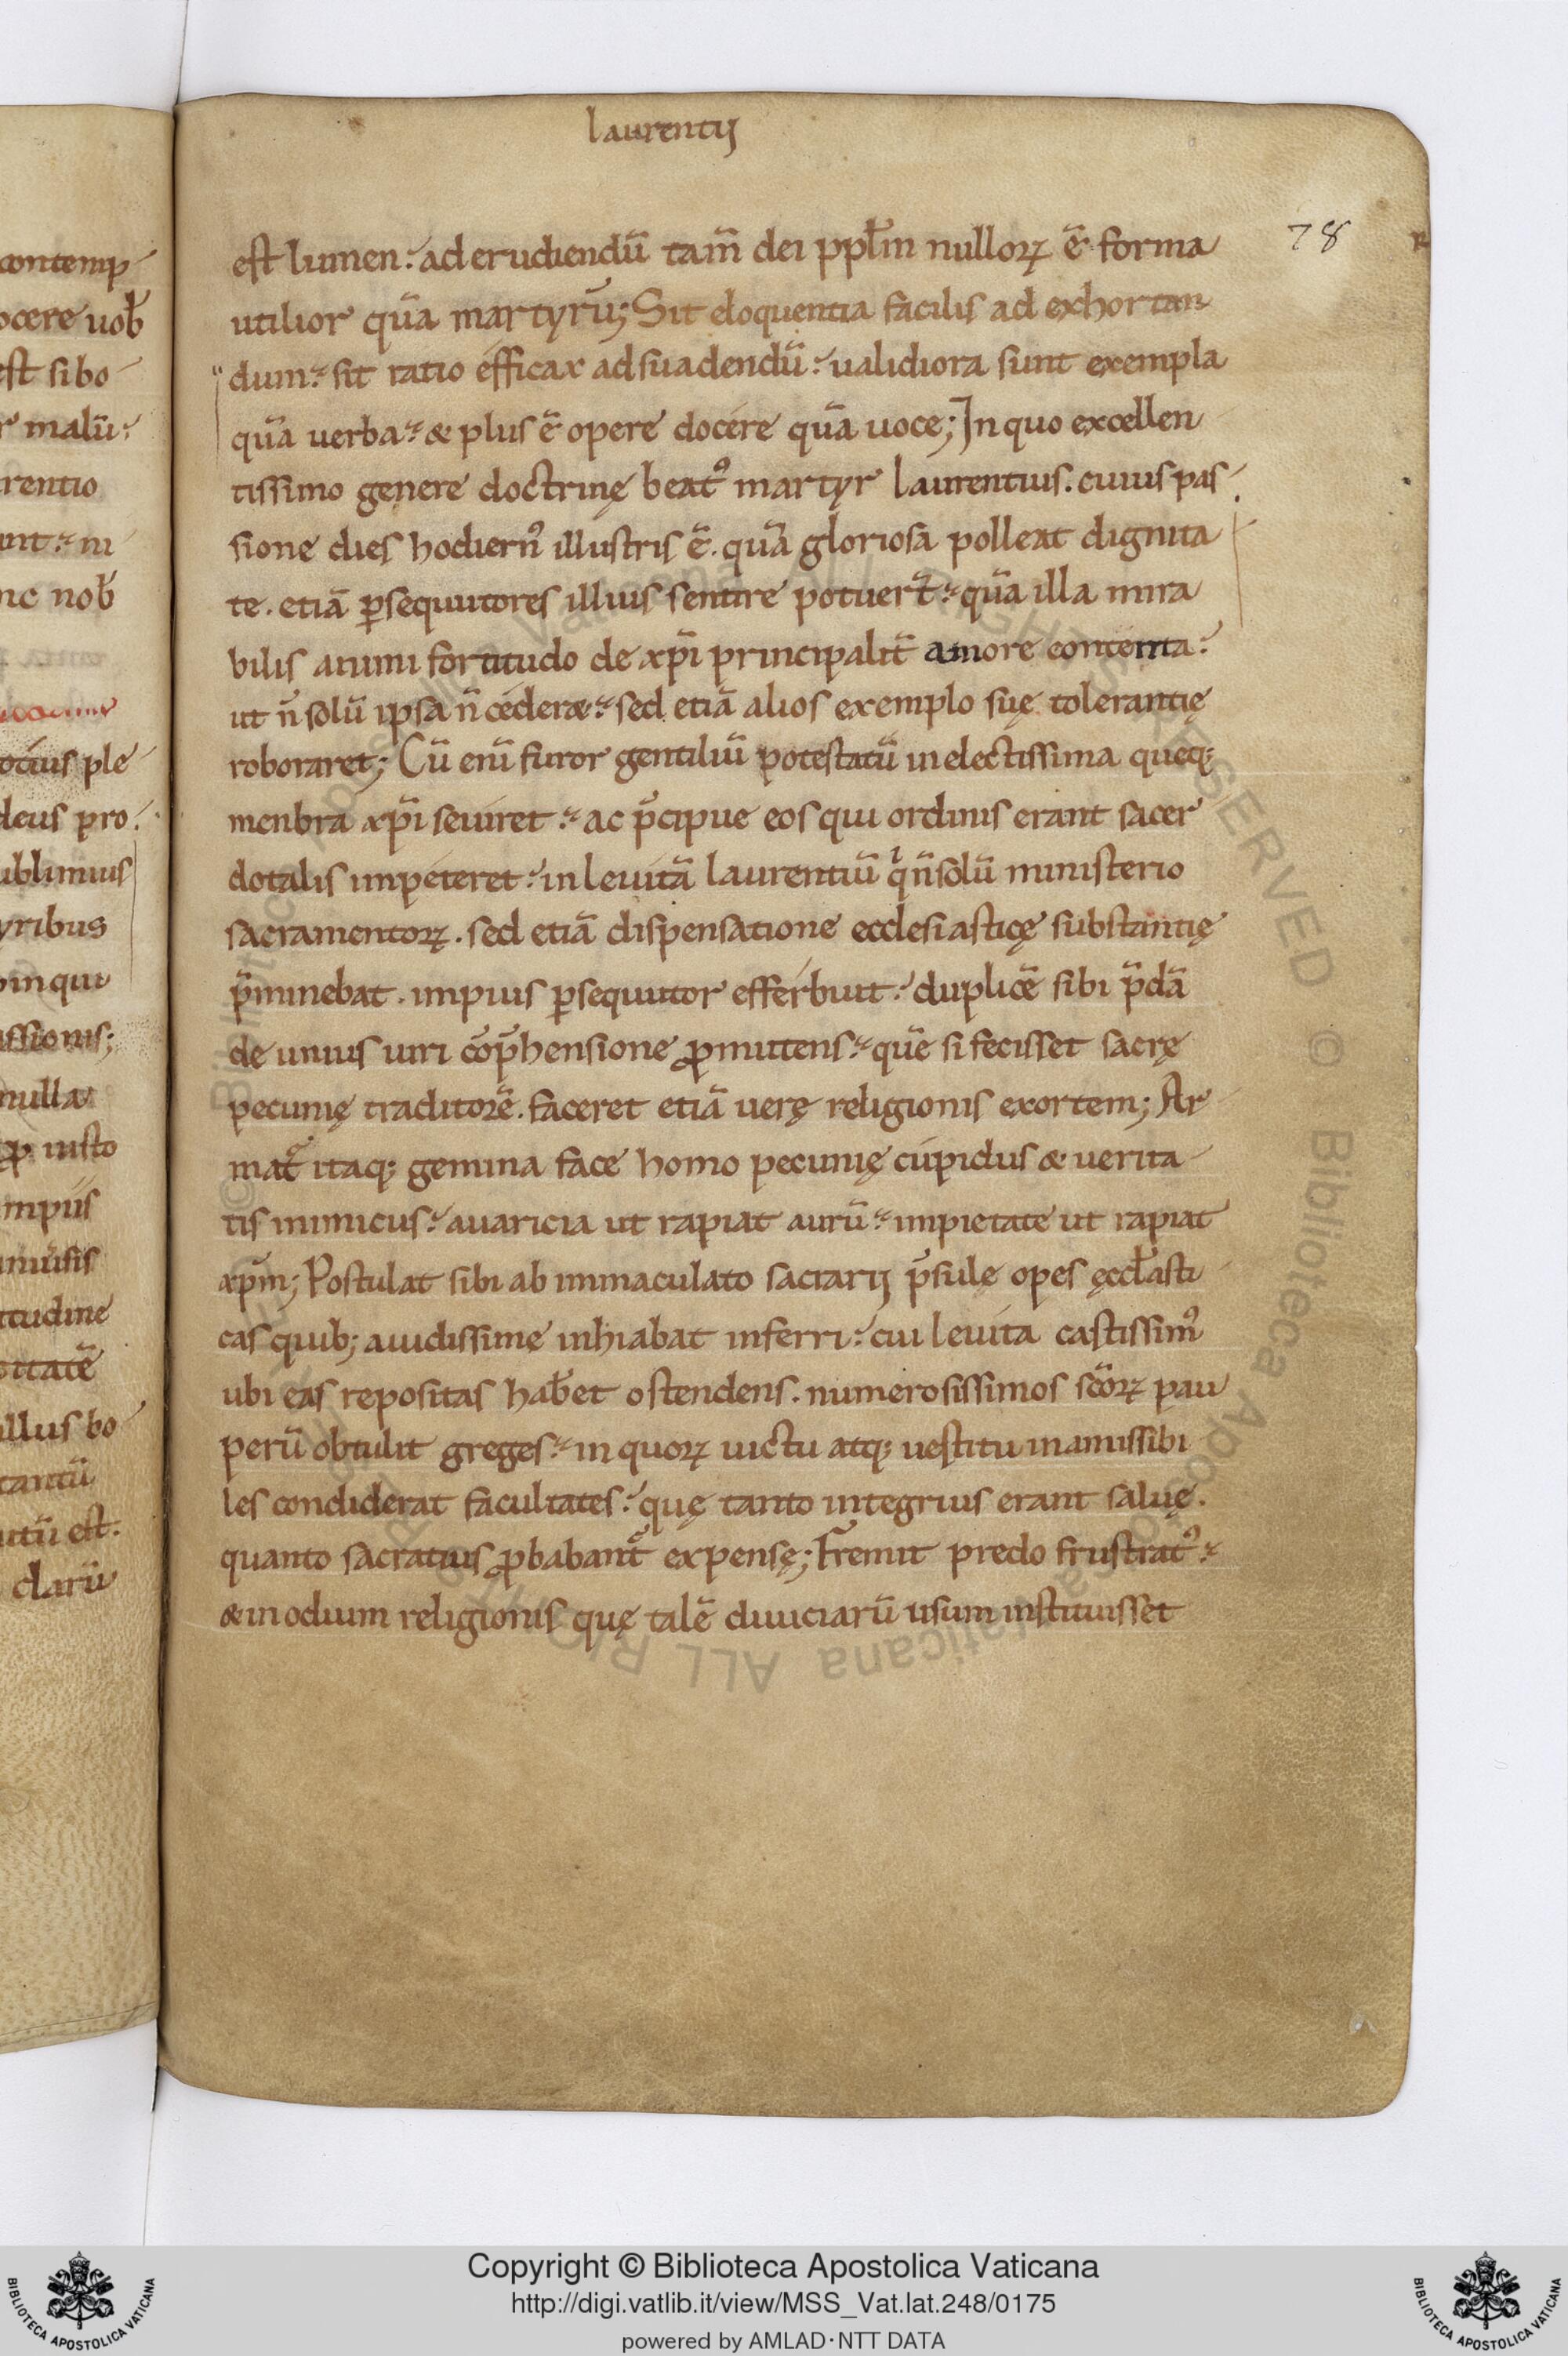 laurentij
78
est lumen. ad erudiendū tam̄ dei pplm̄ nulloꝝ ē forma
utilior quā martyrū; Sit eloquentia facilis ad exhortan
dum. sit ratio efficax ad suadendū. ualidiora sunt exempla
quā uerba. & plus ē opere docere quā uoce; In quo excellen
tissimo genere doctrinę beatꝰ martyr laurentius. cuius pas
sione dies hodiernꝰ illustris ē. quā gloriosa polleat dignita
te. etiā ꝑsequutores illius sentire potuert̄. quā illa mira
bilis animi fortitudo de xp̄i principalit̄ amore concenta.
ut n̄ solū ipsa n̄ cederæ. sed etiā alios exemplo suę tolerantię
roboraret; Cū enī furor gentiliū potestatū in electissima queq;
menbra xp̄i seuiret. ac p̄cipue eos qui ordinis erant sacer
dotalis impeteret. in leuitā laurentiū qͥ n̄ solū ministerio
sacramentoꝝ. sed etiā dispensatione ecclesiasticę substantię
p̄minebat. impius ꝑsequutor efferbuit. duplicē sibi p̄dā
de unius uiri cōp̄hensione ꝓmittens. quē si fecisset sacrę
pecunię traditorē. faceret etiā uerę religionis exortem; Ar
mat̄ itaq; gemina face homo pecunię cupidus & uerita
tis inimicus. auaricia ut rapiat aurū. impietate ut rapiat
xp̄m; Postulat sibi ab immaculato sacrarij p̄sulę opes ęccl̄asti
cas quib; auidissimę inhiabat inferri. cui leuita castissimꝰ
ubi eas repositas hab̄et ostendens. numerosissimos scōꝝ pau
perū obtulit greges. in quoꝝ uictu atq; uestitu inamissibi
les condiderat facultates. quę tanto integrius erant saluę.
quanto sacratius ꝓbabant̄ expensę; Fremit predo frustratꝰ.
& in odium religionis quę talē diuiciarū usum instituisset
contemp
ocere uob̄
est sibo
malū.
rentio
nc nob̄
ple
deus pro.
ublimius
yribus
inqui
ssionis;
nulla
iusto
mpiis
tudine
itatē
illus bo
tantū
utū est.
clarū
Copyright © Biblioteca Apostolica Vaticana
http://digi.vatlib.it/view/MSS_Vat.lat.248/0175
powered by AMLAD·NTT DATA
BIBLIOTECA APOSTOLICA VATICANA
BIBLIOTECA APOSTOLICA VATICANA